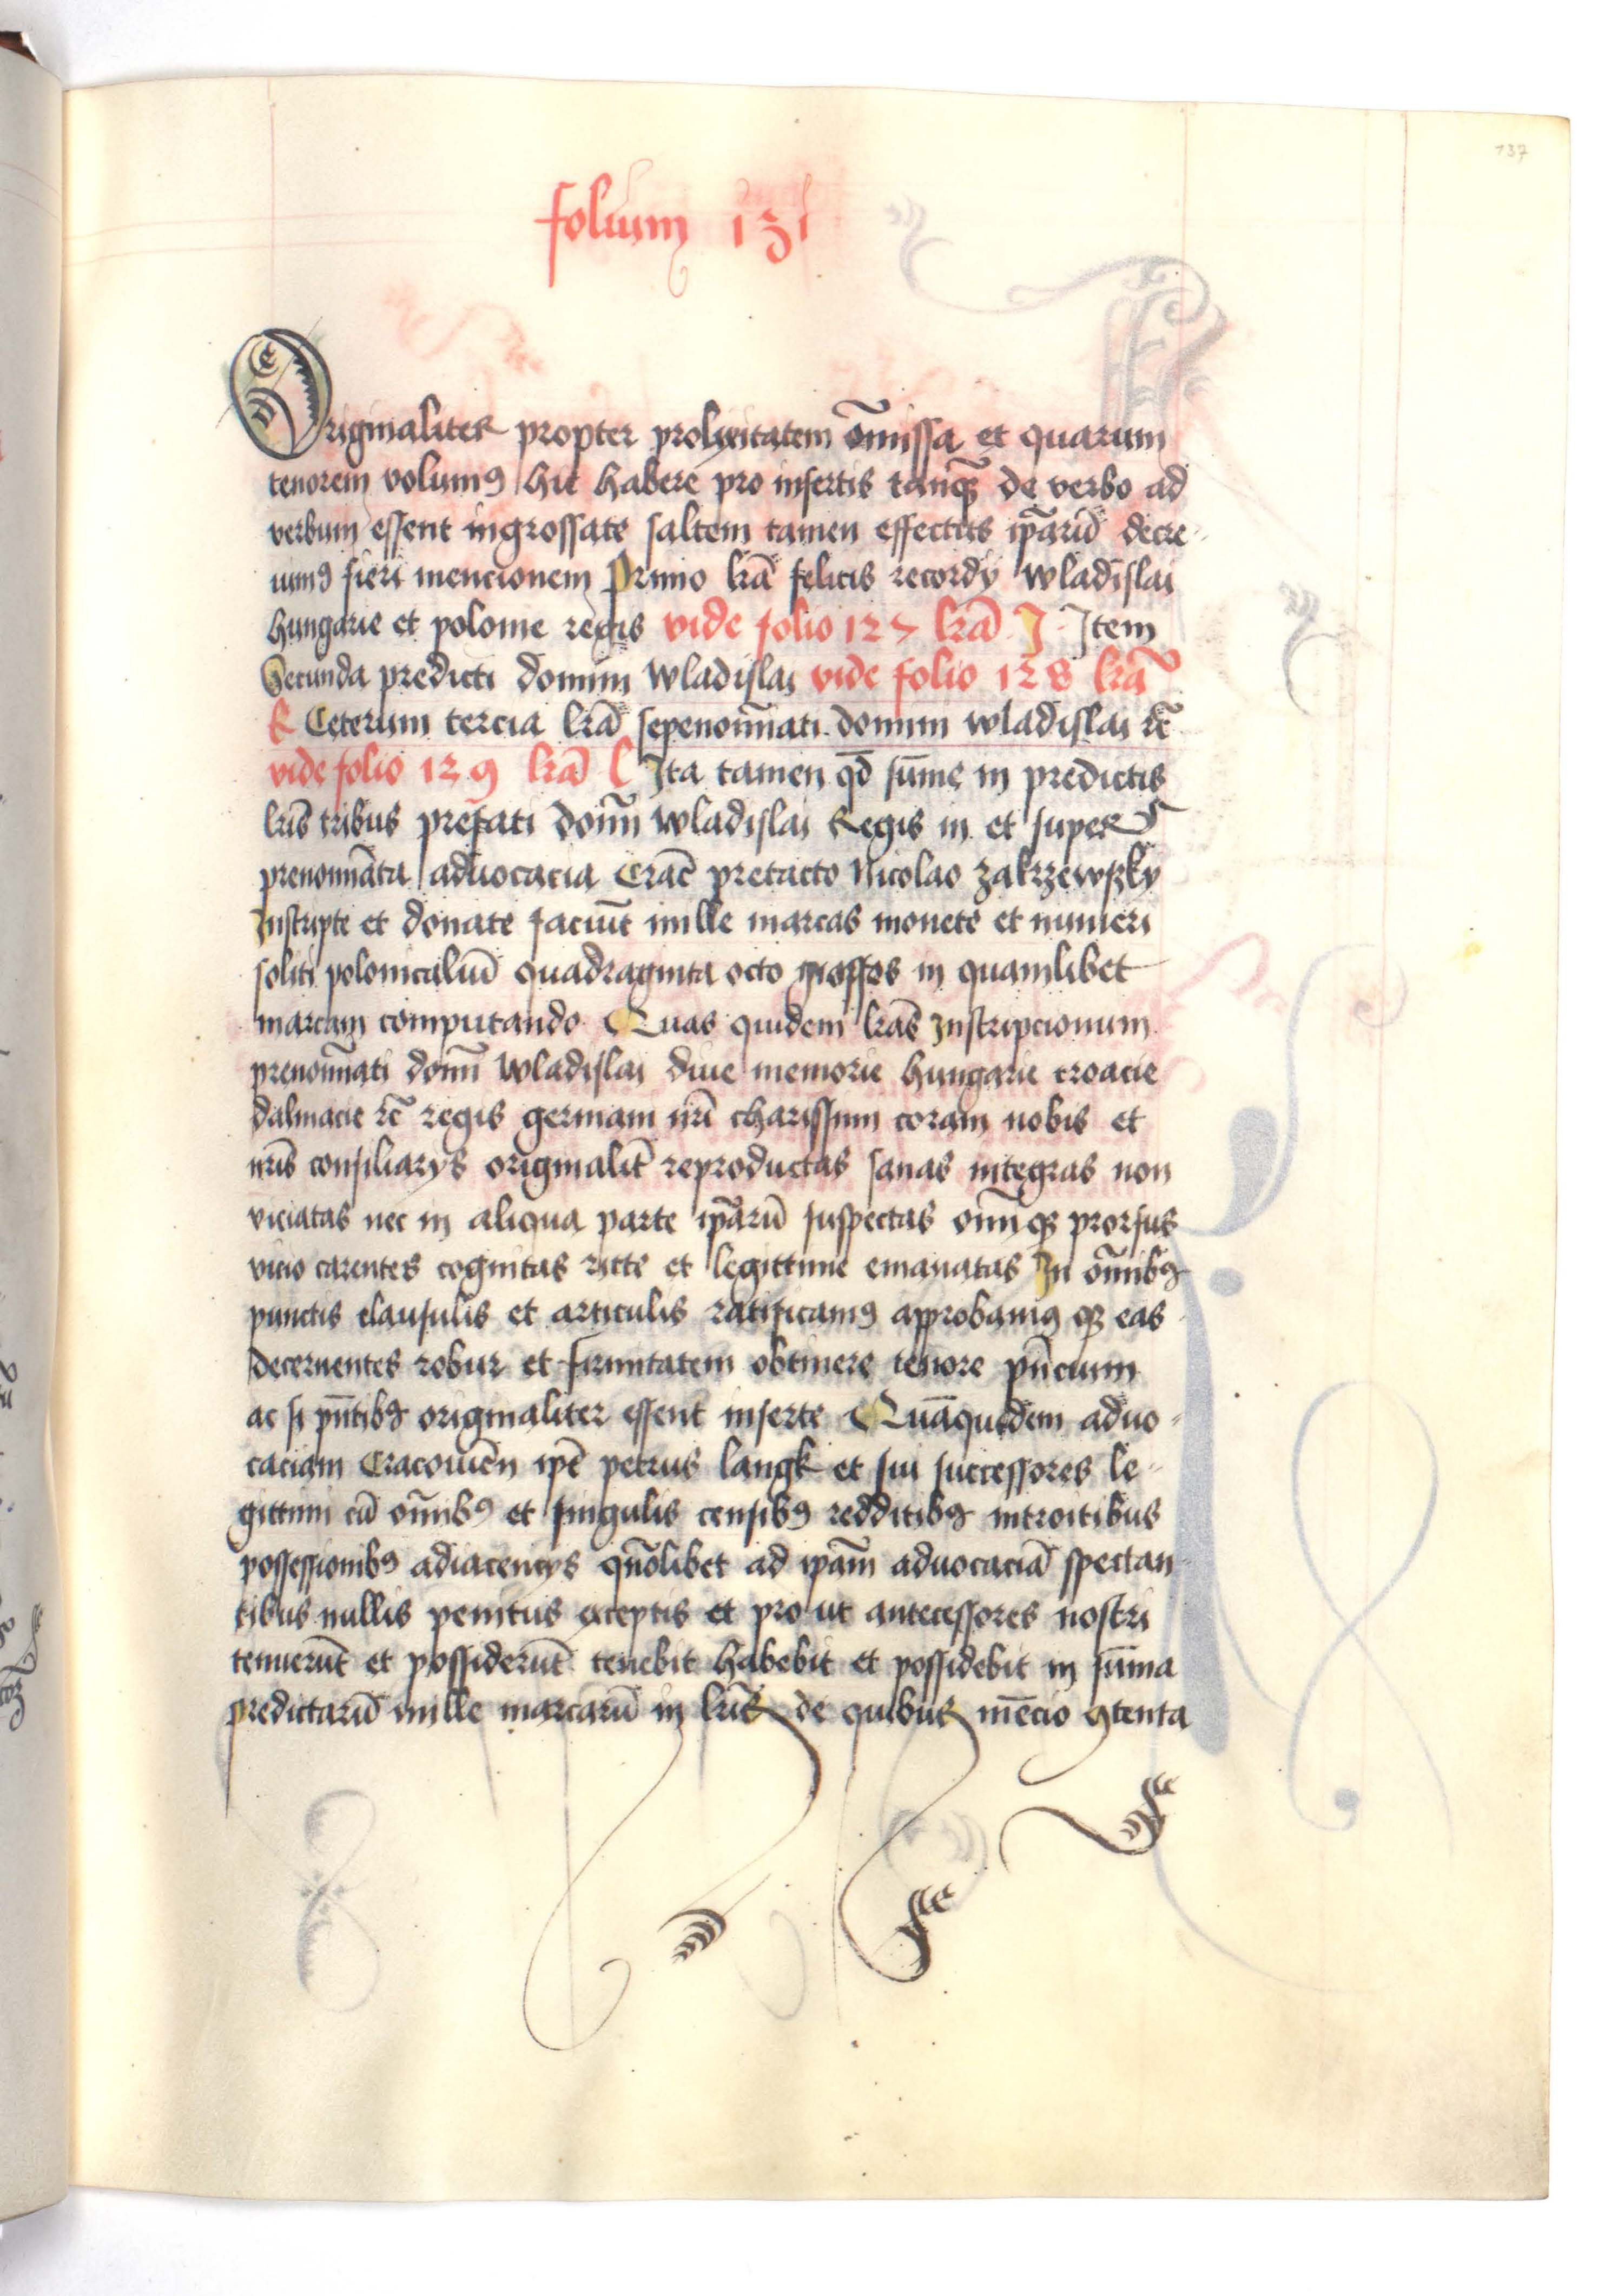 137
folium 131
Originaliter propter prolixitatem om̄issa et quarum
tenorem volumꝰ hic habere pro insertis tanqꝫ de verbo ad
verbum essent ingrossate saltem tamen effectus ip̄arū decre-
uimꝰ fieri mencionem Primo lr̄a felicis recordij Wladislai
hungarie et polonie regis vide folio 127 lr̄a J Item
Secunda predicti domini Wladislai vide folio 128 lr̄a
K Ceterum tercia lr̄a sepenoīnati domini wladislai ꝛc̄
vide folio 129 lr̄a l Ita tamen qd̄ sum̄e in predictis
lr̄is tribus prefati domī Wladislai Regis in et super
prenomīata aduocacia Crac̄ pretacto Nicolao zakrzewszky
Inscripte et donate faciūt mille marcas monete et numeri
soliti polonicaliū quadraginta octo grossos in quamlibet
marcam computando Quas quidem lr̄as Inscripcionum
prenomīati domī Wladislai diue memorie hungarie croacie
dalmacie ꝛc̄ regis germani nr̄i charissimi coram nobis et
nr̄is consiliarijs originalit̄ reproductas sanas integras non
viciatas nec in aliqua parte ip̄arū suspectas omīqꝫ prorsus
vicio carentes cognitas ritte et legittime emanatas In om̄ibꝰ
punctis clausulis et articulis ratificamꝰ approbamꝰ qꝫ eas
decernentes robur et firmitatem obtinere tenore pn̄cium
ac si pn̄tibꝰ originaliter essent inserte Quāquidem aduo-
caciam Cracouien̄ ip̄e petrus langk et sui successores le-
gittimi cū om̄ibꝰ et singulis censibꝰ redditibꝰ introitibus
possessionibꝰ adiacencijs qn̄olibet ad ip̄am aduocaciā spectan-
tibus nullis penitus exceptis et pro ut antecessores nostri
tenuerūt et possiderūt tenebit habebit et possidebit in sum̄a
predictarū mille marcarū in lr̄is de quibus mēcio ꝯtenta